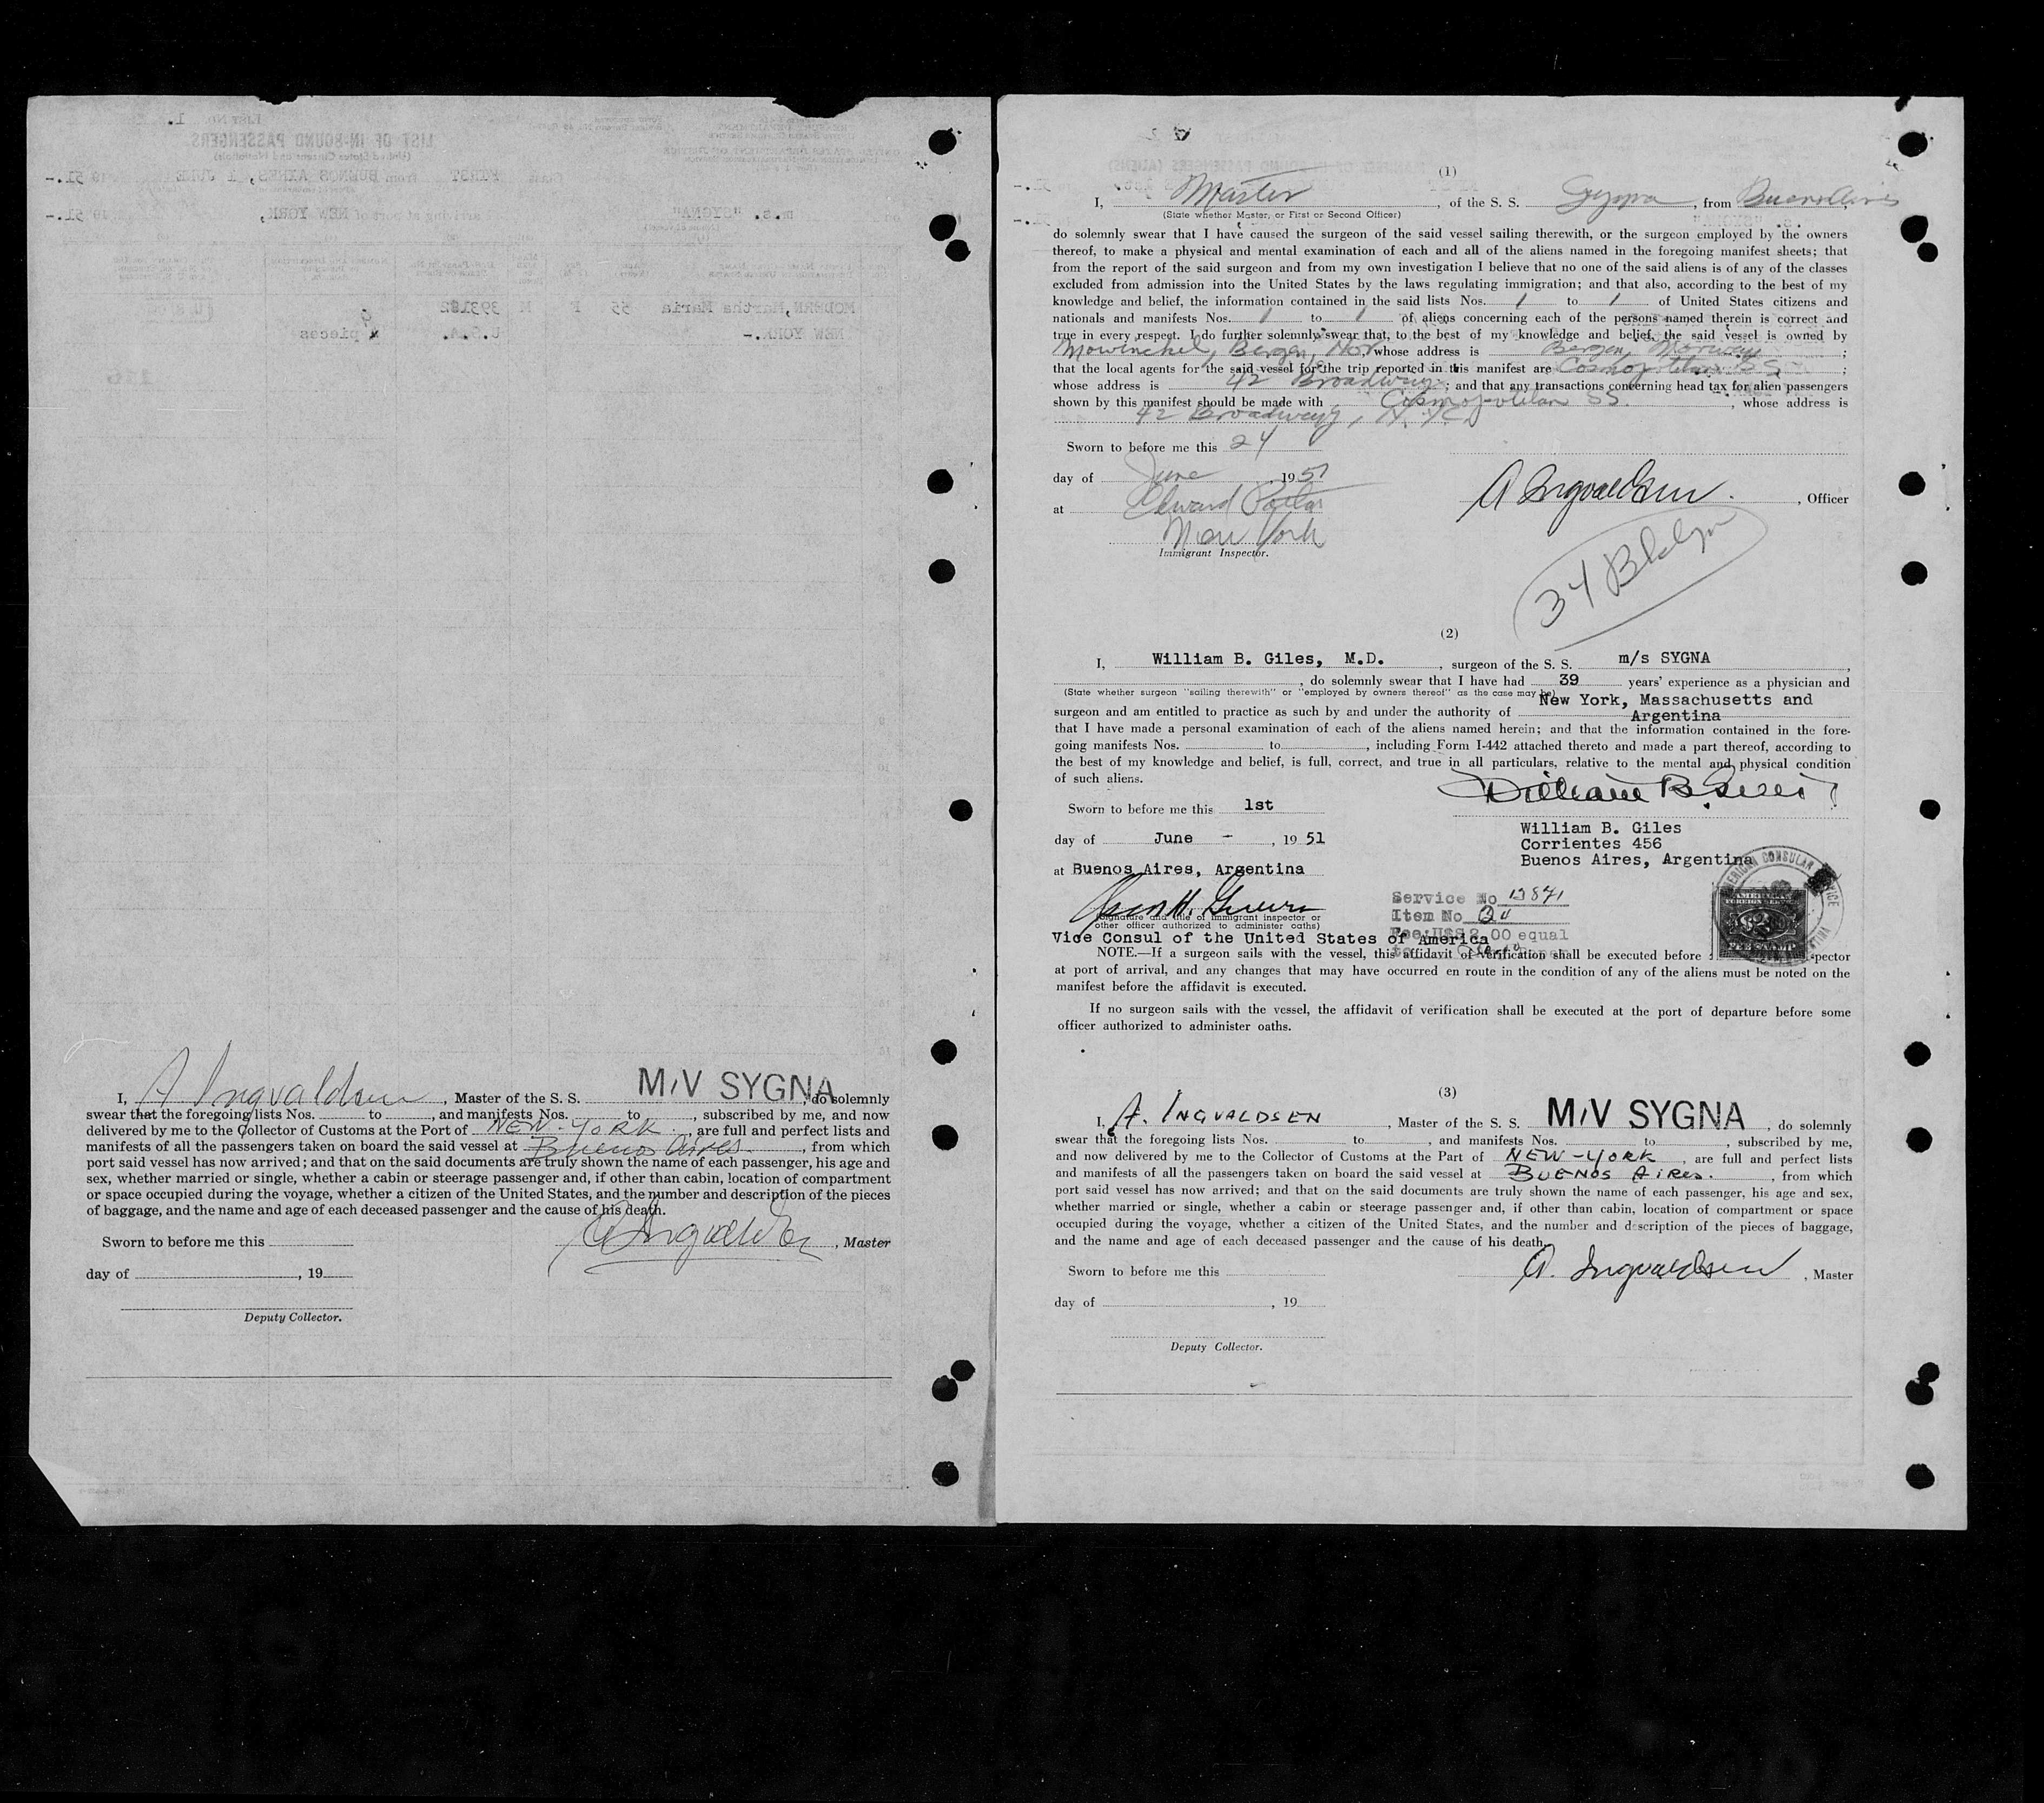 I, A Ingvaldsen, Master of the S. S. M/V SYGNA, do solemnly
swear that the foregoing lists Nos. to , and manifests Nos. to , subscribed by me, and now
delivered by me to the Collector of Customs at the Port of NEW-YORK, are full and perfect lists and
manifests of all the passengers taken on board the said vessel at Buenos Aires., from which
port said vessel has now arrived; and that on the said documents are truly shown the name of each passenger, his age and
sex, whether married or single, whether a cabin or steerage passenger and, if other than cabin, location of compartment
or space occupied during the voyage, whether a citizen of the United States, and the number and description of the pieces
of baggage, and the name and age of each deceased passenger and the cause of his death.
A Ingvaldsen, Master
Sworn to before me this
day of , 19
Deputy Collector.
(1)
I, Master, of the S. S. Sygna, from Buenos Aires
(State whether Master, or First or Second Officer)
do solemnly swear that I have caused the surgeon of the said vessel sailing therewith, or the surgeon employed by the owners
thereof, to make a physical and mental examination of each and all of the aliens named in the foregoing manifest sheets; that
from the report of the said surgeon and from my own investigation I believe that no one of the said aliens is of any of the classes
excluded from admission into the United States by the laws regulating immigration; and that also, according to the best of my
knowledge and belief, the information contained in the said lists Nos. 1 to 1 of United States citizens and
nationals and manifests Nos. 1 to 1 of aliens concerning each of the persons named therein is correct and
true in every respect. I do further solemnly swear that, to the best of my knowledge and belief, the said vessel is owned by
Mowinckel, Bergen, Nor, whose address is Bergen, Norway;
that the local agents for the said vessel for the trip reported in this manifest are Cosmopolitan SS;
whose address is 42 Broadway; and that any transactions concerning head tax for alien passengers
shown by this manifest should be made with Cosmopolitan SS., whose address is
42 Broadway, N.Y.C.
Sworn to before me this 24
day of June, 1951
A Ingvaldsen., Officer
at Edward
New York
Immigrant Inspector.
34 Bklyn
(2)
I, William B. Giles, M.D., surgeon of the S. S. m/s SYGNA,
, do solemnly swear that I have had 39 years' experience as a physician and
(State whether surgeon "sailing therewith" or "employed by owners thereof" as the case may be)
surgeon and am entitled to practice as such by and under the authority of New York, Massachusetts and
Argentina
that I have made a personal examination of each of the aliens named herein; and that the information contained in the fore-
going manifests Nos. to , including Form I-442 attached thereto and made a part thereof, according to
the best of my knowledge and belief, is full, correct, and true in all particulars, relative to the mental and physical condition
of such aliens.
William B. Giles
Sworn to before me this 1st
day of June - , 19 51
William B. Giles
Corrientes 456
Buenos Aires, Argentina
at Buenos Aires, Argentina
Service No 12871
Item No
Fee: U$S 2.00 equal
(Signature and title of immigrant inspector or
other officer authorized to administer oaths)
Vice Consul of the United States of America
AMERICAN CONSULAR SERVICE
AMERICAN
FOREIGN SERVICE
$2
FEE STAMP
NOTE.—If a surgeon sails with the vessel, this affidavit of verification shall be executed before spector
at port of arrival, and any changes that may have occurred en route in the condition of any of the aliens must be noted on the
manifest before the affidavit is executed.
If no surgeon sails with the vessel, the affidavit of verification shall be executed at the port of departure before some
officer authorized to administer oaths.
(3)
I, A. INGVALDSEN, Master of the S. S. M/V SYGNA, do solemnly
swear that the foregoing lists Nos. to , and manifests Nos. to , subscribed by me,
and now delivered by me to the Collector of Customs at the Part of NEW-YORK, are full and perfect lists
and manifests of all the passengers taken on board the said vessel at BUENOS AIRES., from which
port said vessel has now arrived; and that on the said documents are truly shown the name of each passenger, his age and sex,
whether married or single, whether a cabin or steerage passenger and, if other than cabin, location of compartment or space
occupied during the voyage, whether a citizen of the United States, and the number and description of the pieces of baggage,
and the name and age of each deceased passenger and the cause of his death.
A. Ingvaldsen, Master
Sworn to before me this
day of , 19
Deputy Collector.